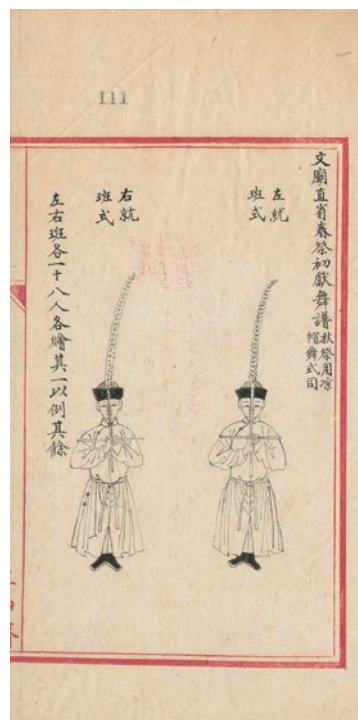 111
文廟直省春祭初獻舞譜秋祭用涼帽舞式同
左就
班式
右就
班式
左右班各一十八人各繪其一以例其餘